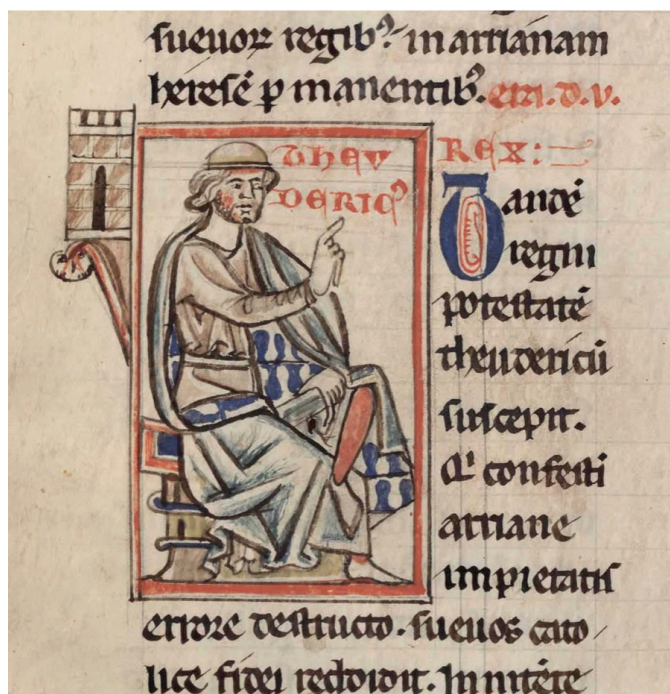 sueuoꝝ regibꝰ. in arrianam
heresē ꝑ manentibꝰ. era. d. v.
theu
dericꝰ
REX:
Tandē
regni
potestatē
theudericū
suscepit.
Q̄ confesti
arriane
impietatis
errore destructo. sueuos cato
lice fidei reddidit. Innitēte